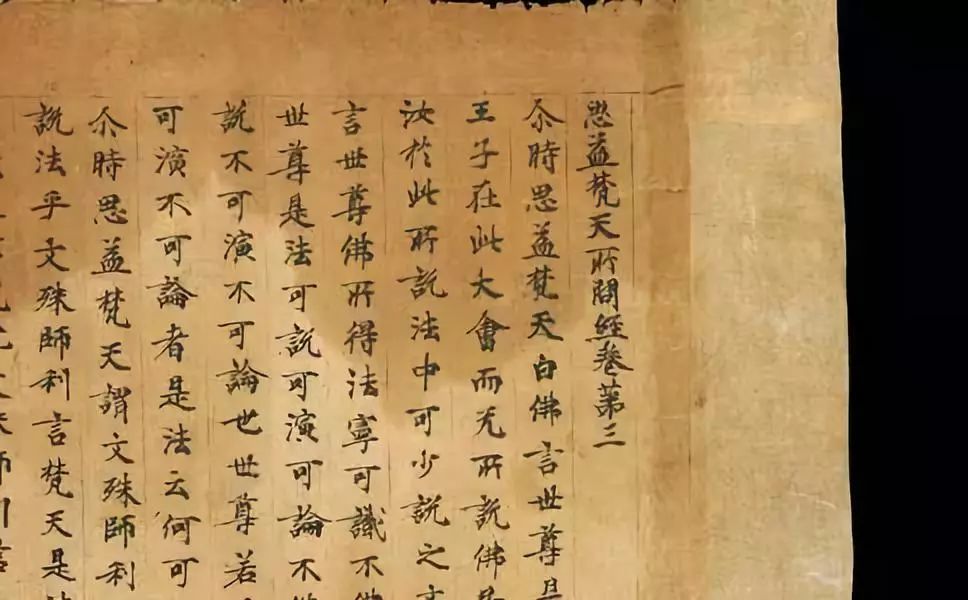 思益梵天所問經卷第三
尒時思益梵天白佛言世尊是
王子在此大會而无所說佛
汝於此所說法中可少說之文
言世尊佛所得法寧可識不佛
世尊是法可說可演可論不
說不可演不可論世尊若
可演不可論者是法云何可
尒時思益梵天謂文殊師利
說法乎文殊師利言梵天是